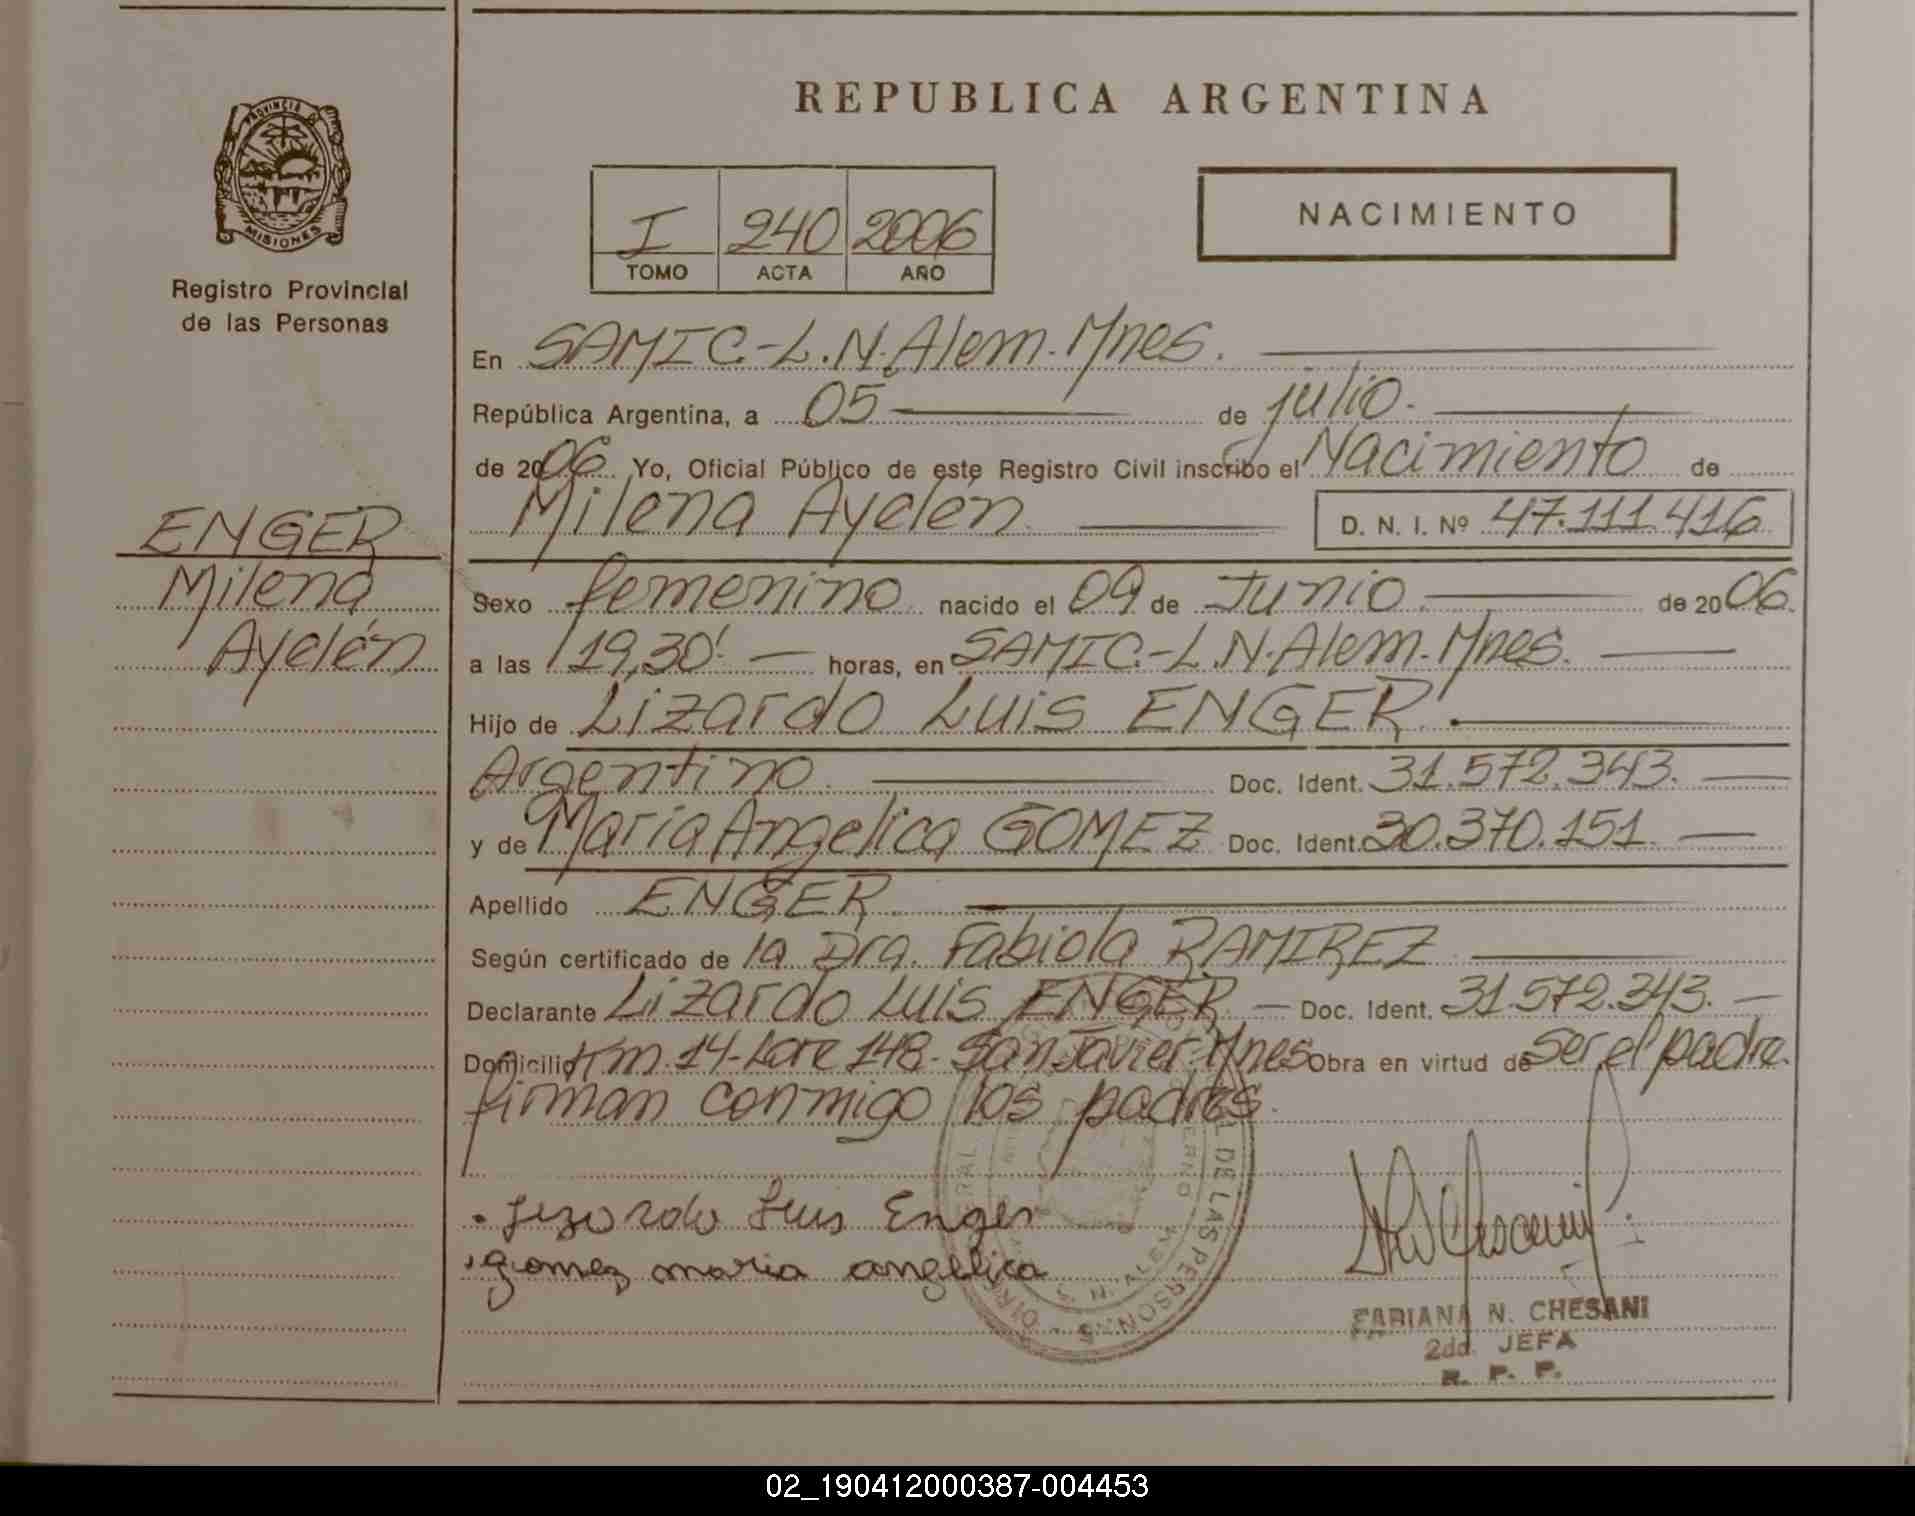 REPUBLICA ARGENTINA
PROVINCIA DE
MISIONES
Registro Provincial
de las Personas
I 240 2006
TOMO ACTA AÑO
NACIMIENTO
En SAMIC.-L.N.Alem.Mnes.
República Argentina, a 05 de julio.
de 2006. Yo, Oficial Público de este Registro Civil inscribo el Nacimiento de
Milena Ayelén D. N. I. Nº 47.111.416
ENGER
Milena
Ayelén
Sexo femenino nacido el 09 de Junio de 2006.
a las 19,30' horas, en SAMIC.-L.N.Alem.Mnes.
Hijo de Lizardo Luis ENGER.
Argentino Doc. Ident. 31.572.343.
y de Maria Angelica GOMEZ Doc. Ident. 30.370.151.
Apellido ENGER
Según certificado de la Dra. Fabiola RAMIREZ
Declarante Lizardo Luis ENGER Doc. Ident. 31.572.343.
Domicilio Km.14-Lote 148. San Javier.Mnes Obra en virtud de Ser el padre.
firman conmigo los padres.
Lizardo Luis Enger
gomez maria angelica
DE LAS PERSONAS
N. ALEM
FABIANA N. CHESANI
2da. JEFA
R. P. P.
02_190412000387-004453